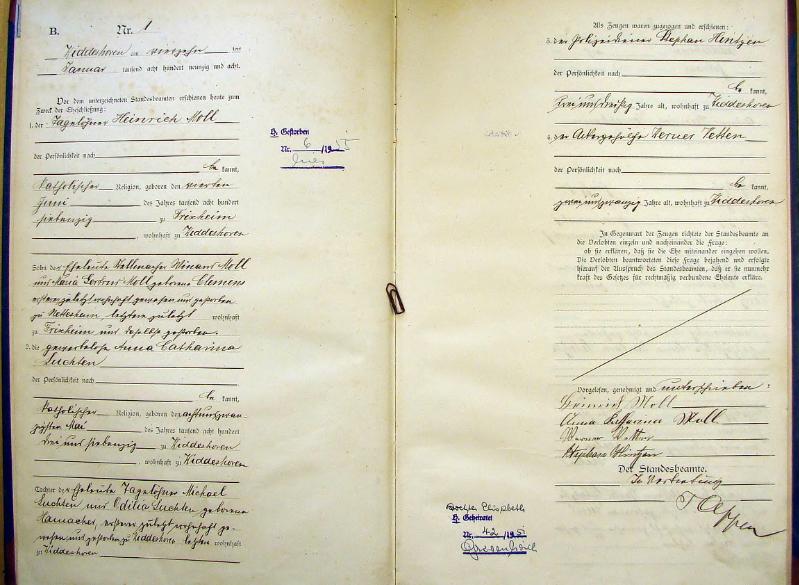 B.
Nr. 1
Hiddeshoven am vierzehn ten
Januar tausend acht hundert neunzig und acht.
Vor dem unterzeichneten Standesbeamten erschienen heute zum
Zweck der Eheschließung:
1. der Tagelöhner Heinrich Moll
der Persönlichkeit nach
be kannt,
katholischer Religion, geboren den vierten
Juni des Jahres tausend acht hundert
siebenzig zu Frixheim
, wohnhaft zu Hiddeshoven
Sohn der Eheleute Winand Moll
und Maria Gertrud Moll geborene Clemens
ersterer zuletzt wohnhaft gewesen und gestorben
zu Nettesheim, letztere zuletzt wohnhaft
zu Frixheim und daselbst gestorben.
2. die gewerblose Anna Catharina
Luchten
der Persönlichkeit nach
be kannt,
katholischer Religion, geboren den achtundzwan
zigsten Mai des Jahres tausend acht hundert
drei und siebenzig zu Hiddeshoven
, wohnhaft zu Hiddeshoven
Tochter der Eheleute Tagelöhner Michael
Luchten und Odilia Luchten geborene
Hamacher, ersterer zuletzt wohnhaft ge-
wesen und gestorben zu Hiddeshoven letztere wohnhaft
zu Hiddeshoven
H. Gestorben
Nr. 6 /1955
Als Zeugen waren zugezogen und erschienen:
3. der Polizeidiener Stephan Hintzen
der Persönlichkeit nach
be kannt,
zwei und dreißig Jahre alt, wohnhaft zu Hiddeshoven
4. der Ackergehülfe Werner Vetten
der Persönlichkeit nach
be kannt,
zwei und zwanzig Jahre alt, wohnhaft zu Hiddeshoven
In Gegenwart der Zeugen richtete der Standesbeamte an
die Verlobten einzeln und nacheinander die Frage:
ob sie erklären, daß sie die Ehe miteinander eingehen wollen.
Die Verlobten beantworteten diese Frage bejahend und erfolgte
hierauf der Ausspruch des Standesbeamten, daß er sie nunmehr
kraft des Gesetzes für rechtmäßig verbundene Eheleute erkläre.
Vorgelesen, genehmigt und unterschrieben:
Heinrich Moll
Anna Katharina Moll
Werner Vetten
Stephan Hintzen
Der Standesbeamte.
In Vertretung
Tochter Elisabeth
H. Geheiratet
Nr. 42 /195